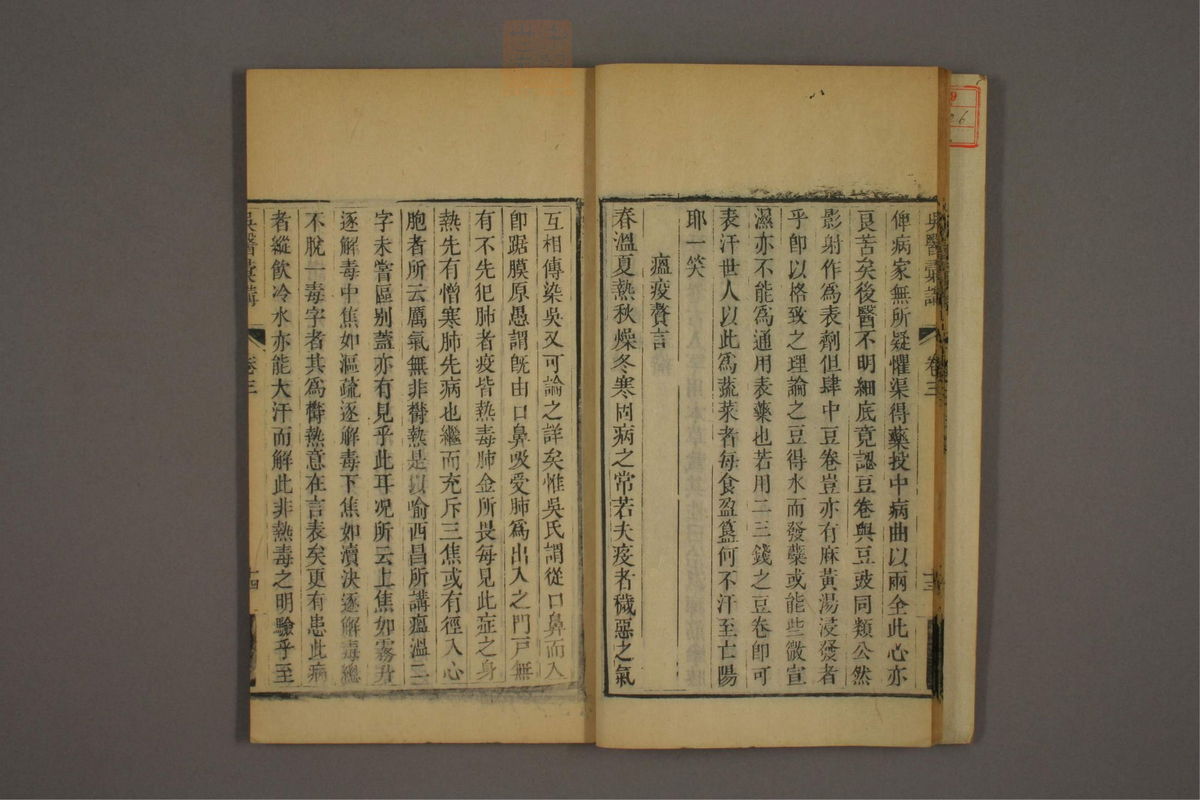 吳醫彙講
卷三
十三
俾病家無所疑懼渠得藥投中病曲以兩全此心亦
良苦矣後醫不明細底竟認豆卷與豆豉同類公然
影射作為表劑但肆中豆卷豈亦有麻黃湯浸發者
乎卽以格致之理論之豆得水而發蘗或能些微宣
濕亦不能為通用表藥也若用二三錢之豆卷卽可
表汗世人以此為蔬菜者每食盈簋何不汗至亡陽
耶一笑
瘟疫贅言
春溫夏熱秋燥冬寒固病之常若夫疫者穢惡之氣
互相傳染吳又可論之詳矣惟吳氏謂從口鼻而入
卽踞膜原愚謂旣由口鼻吸受肺為出入之門戶無
有不先犯肺者疫皆熱毒肺金所畏每見此症之身
熱先有憎寒肺先病也繼而充斥三焦或有徑入心
胞者所云厲氣無非欝熱是以喻西昌所講瘟溫二
字未嘗區别蓋亦有見乎此耳況所云上焦如霧升
逐解毒中焦如漚疏逐解毒下焦如瀆決逐解毒總
不脫一毒字者其為欝熱意在言表矣更有患此病
者縱飲冷水亦能大汗而解此非熱毒之明驗乎至
吳醫彙講
卷三
十四